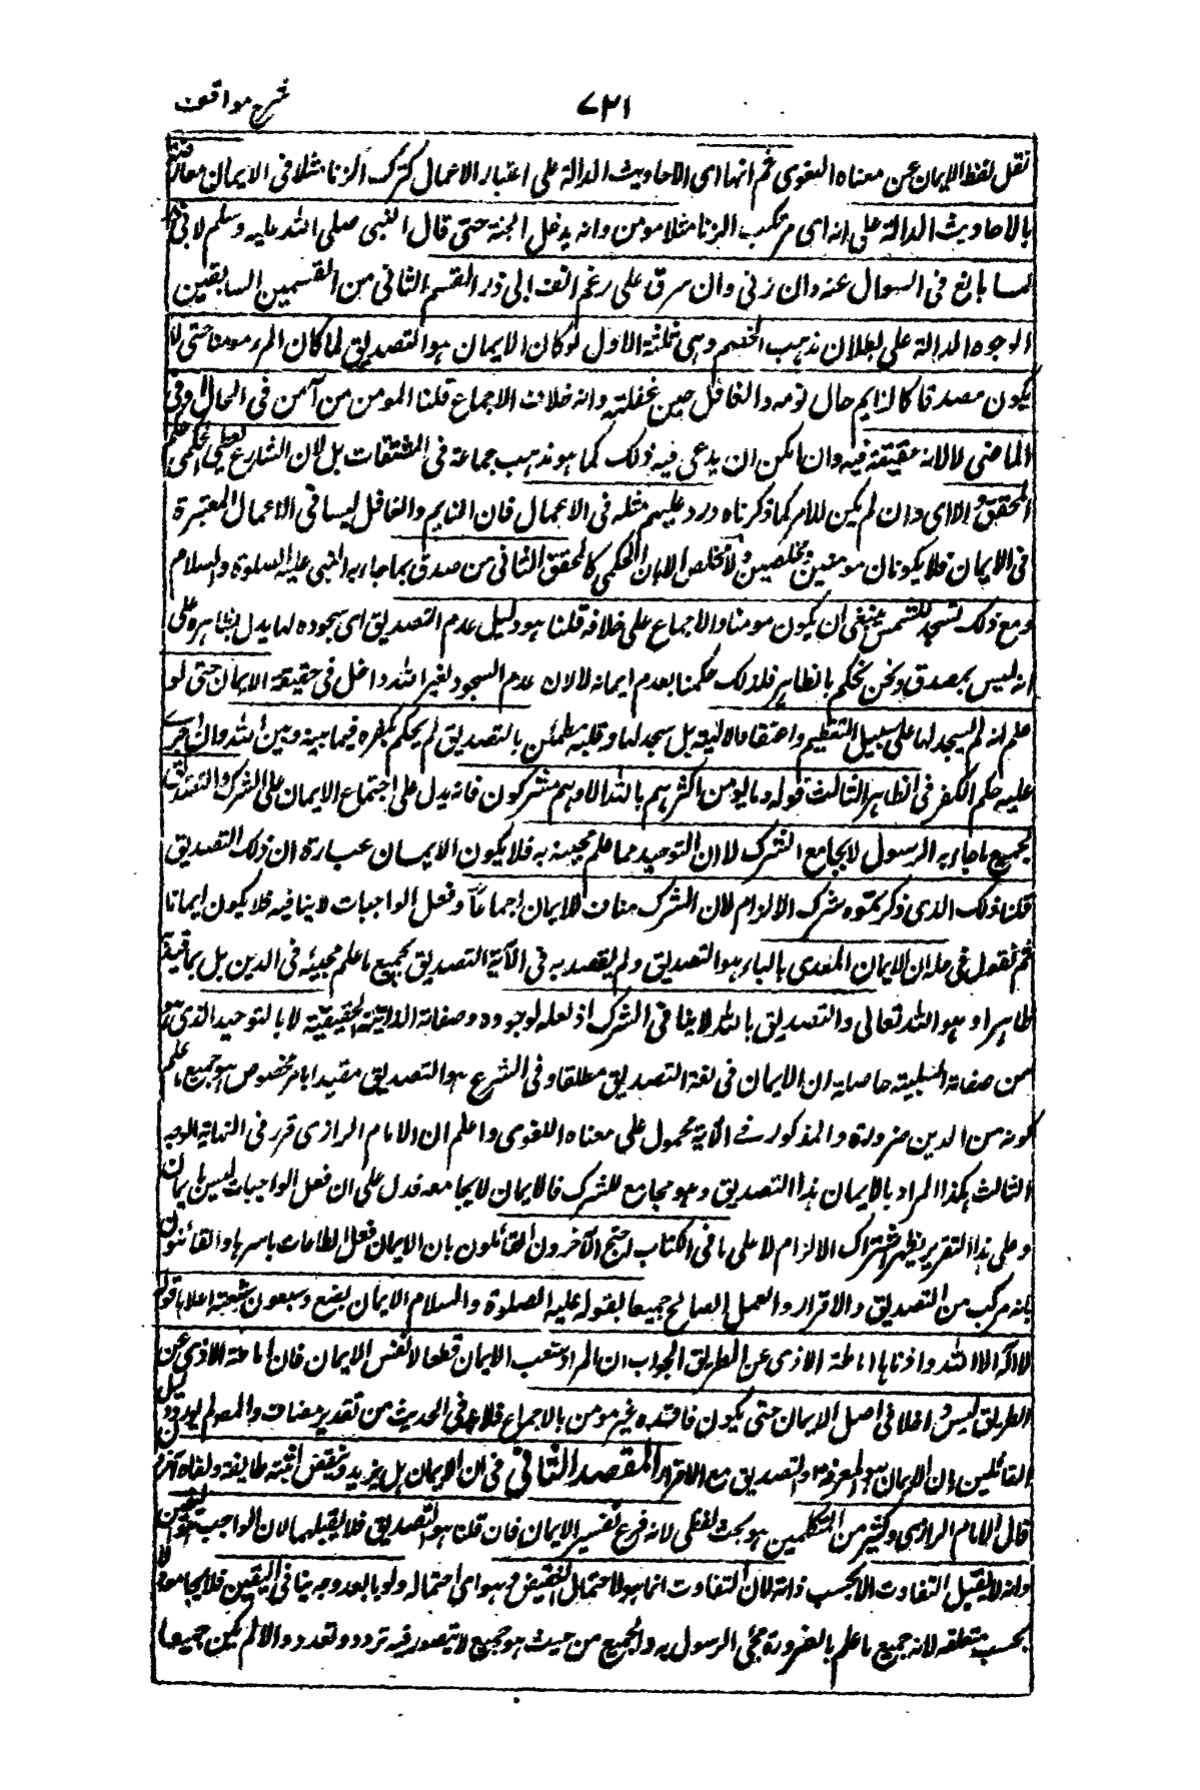 شرح مواقف
٧٢١
نقل لفظ الايمان عن معناه اللغوى ثم انها اى الاحاديث الدالة على اعتبار الاعمال كترك الزنا مثلا فى الايمان معارضة
بالاحاديث الدالة على انه اى مرتكب الزنا مثلا مومن وانه يدخل الجنة حتى قال النبى صلى الله عليه وسلم لابى ذر
لما بالغ فى السوال عنه وان زنى وان سرق على رغم انف ابى ذر القسم الثانى من القسمين السابقين
الوجوه الدالة على بطلان مذهب الخصم وهى ثلثة الاول لو كان الايمان هو التصديق لما كان المرء مومنا حتى لا
يكون مصدقا كالنايم حال نومه والغافل حين غفلته وانه خلاف الاجماع قلنا المومن من آمن فى الحال او فى
الماضى لا لانه حقيقة فيه وان امكن ان يدعى فيه ذلك كما هو مذهب جماعة فى المشتقات بل لان الشارع يعطى الحكمى حكم
المحقق والا اى وان لم يكن الامر كما ذكرناه ورد عليهم مثله فى الاعمال فان النايم والغافل ليسا فى الاعمال المعتبرة
فى الايمان فلا يكونان مومنين ولا مخلص الا بان الحكمى كالمحقق الثانى من صدق بما جاء به النبى عليه السلوة والسلام
ومع ذلك سجد للشمس ينبغى ان يكون مومنا والاجماع على خلافه قلنا هو دليل عدم التصديق اى سجوده لها يدل بظاهره على
انه ليس بمصدق ونحن نحكم بالظاهر فلذلك حكمنا بعدم ايمانه لا لان عدم السجود لغير الله داخل فى حقيقة الايمان حتى لو
علم انه لم يسجد لها على سبيل التعظيم واعتقاد الالهية بل سجد لها وقلبه مطمئن بالتصديق لم يحكم بكفره فيما بينه وبين الله وان اجرى
عليه حكم الكفر فى الظاهر الثالث قوله وما يومن اكثرهم بالله الا وهم مشركون فانه يدل على اجتماع الايمان على الشرك والتصديق
بجميع ما جاء به الرسول لا يجامع الشرك لان التوحيد مما علم مجيئه به فلا يكون الايمان عبارة ان ذلك التصديق
قلنا ذلك الذى ذكرتموه مشترك الالزام لان الشرك مناف للايمان اجماعا وفعل الواجبات لا ينافيه فلا يكون ايمانا
ثم نقول فى حله ان الايمان المعدى بالباء هو التصديق ولم يقصد به فى الآية التصديق بجميع ما علم مجيئه فى الدين بل بما قيد به
ظاهرا وهو الله تعالى والتصديق بالله لا ينافى الشرك اذ لعله لوجوده وصفاته الذاتية الحقيقية لا بالتوحيد الذى هو
من صفاته السلبية حاصله ان الايمان فى لغة التصديق مطلقا وفى الشرع هو التصديق مقيدا بامر مخصوص هو جميع ما علم
كونه من الدين ضرورة والمذكور فى الآية محمول على معناه اللغوى واعلم ان الامام الرازى قرر فى النهاية الوجه
الثالث هكذا المراد بالايمان هذا التصديق وهو مجامع للشرك فالايمان لا يجامعه فدل على ان فعل الواجبات ليس بايمان
وعلى هذا التقرير يظهر اشتراك الالزام لا على ما فى الكتاب احتج الآخرون القائلون بان الايمان فعل الطاعات باسرها والقائلون
بانه مركب من التصديق والاقرار والعمل الصالح جميعا بقوله عليه الصلوة والسلام الايمان بضع وسبعون شعبة اعلاها قول
لا اله الا الله وادناها اماطة الاذى عن الطريق الجواب ان المراد شعب الايمان قطعا لا نفس الايمان فان اماطة الاذى عن
الطريق ليس داخلا فى اصل الايمان حتى يكون فاقده غير مومن بالاجماع فلا بد فى الحديث من تقدير مضاف والمص لم يورد دليل
القائلين بان الايمان هو المعرفة او التصديق مع الاقرار المقصد الثانى فى ان الايمان هل يزيد وينقص اثبته طايفة ونفاه آخرون
قال الامام الرازى وكثير من المتكلمين هو بحث لفظى لانه فرع تفسير الايمان فان قلنا هو التصديق فلا يقبلهما لان الواجب هو اليقين
وانه لا يقبل التفاوت لا بحسب ذاته لان التفاوت انما هو لاحتمال النقيض وهو اى احتماله ولو بابعد وجه ينافى اليقين فلا يجامعه ولا
بحسب متعلقه لانه جميع ما علم بالضرورة مجئ الرسول به والجميع من حيث هو جميع لا يتصور فيه تردد وتعدد والا لم يكن جميعا